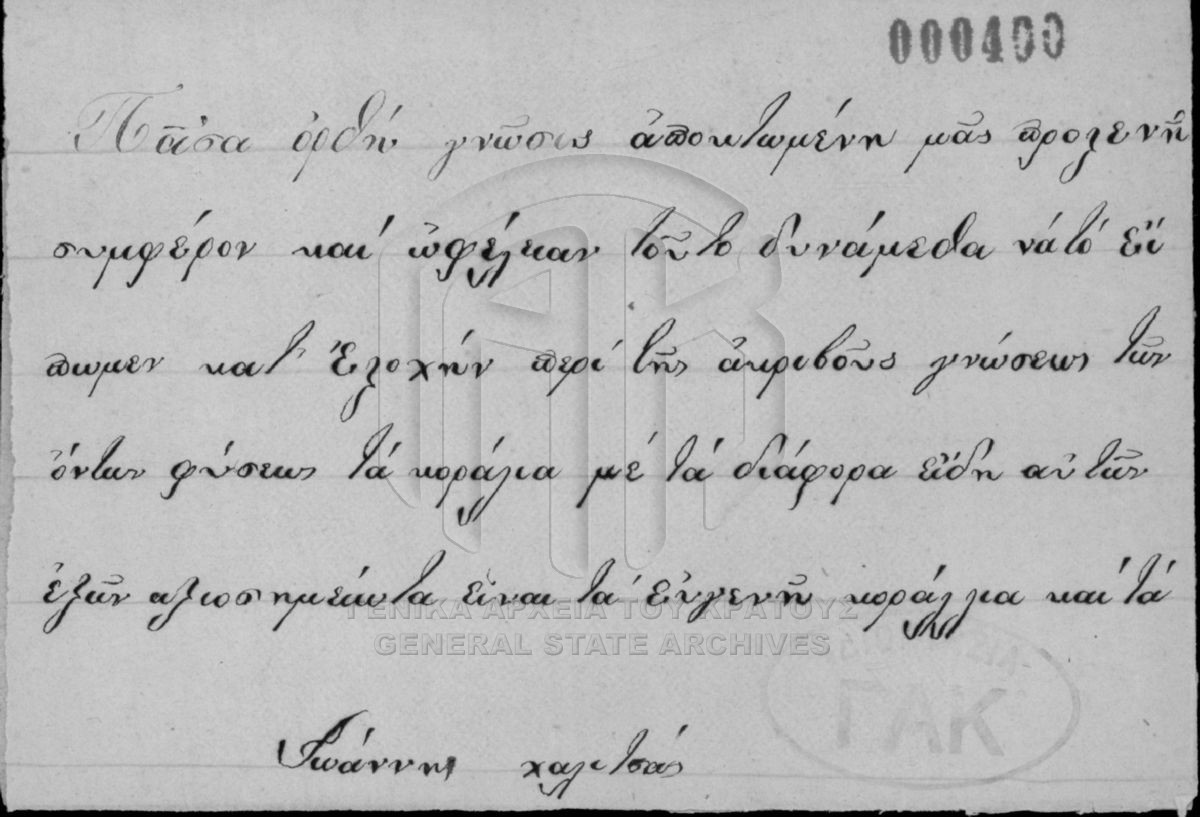 000400
Πᾶσα ὀρθή γνῶσις ἀποκτωμένη μᾶς προξενῆ
συμφέρον καί ὠφέλειαν τοῦτο δυνάμεθα νά τό εἴ
πωμεν κατ' ἐξοχήν περί τῆς ἀκριβοῦς γνώσεως τῶν
ὄντων φύσεως τά κοράλια μέ τά διάφορα εἴδη αὐτῶν
ἐξῶν αξιοσημείωτα εἶναι τά εὐγενῆ κοράλλια καί τά
ΓΕΝΙΚΑ ΑΡΧΕΙΑ ΤΟΥ ΚΡΑΤΟΥΣ
GENERAL STATE ARCHIVES
ΓΑΚ
Ἰωάννης χαλιτσάς